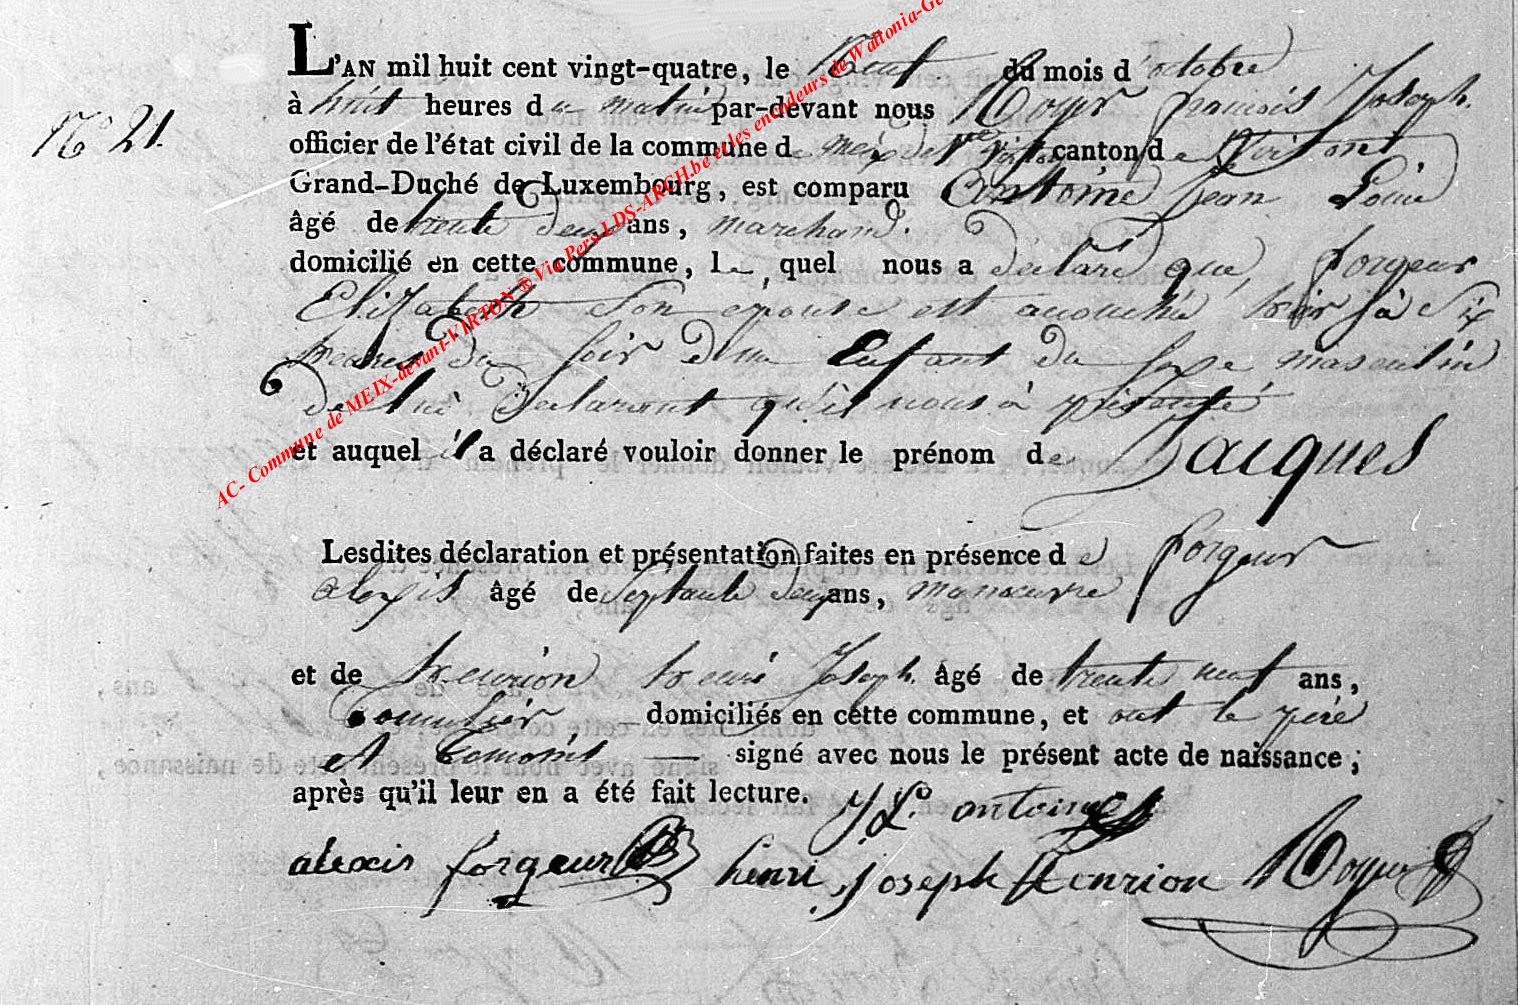 L'AN mil huit cent vingt-quatre, le neuf du mois d'octobre
N.o 21.
à huit heures du matin par-devant nous Royer françois Joseph
officier de l'état civil de la commune de meix devt Virton canton de Virton
Grand-Duché de Luxembourg, est comparu Antoine Jean Louis
âgé de trente deux ans, marchand.
domicilié en cette commune, lequel nous a déclaré que forgeur
Elizabeth Son epouse est accouchée hier à Six
heures du Soir d'un Enfant du Sexe masculin
de lui declarant qu'il nous à presenté
et auquel il a déclaré vouloir donner le prénom de Jacques
Lesdites déclaration et présentation faites en présence de forgeur
alexis âgé de Septante deux ans, manoeuvre
et de henrion henri Joseph. âgé de trente neuf ans,
domiciliés en cette commune, et ont le père
et temoins signé avec nous le présent acte de naissance;
après qu'il leur en a été fait lecture.
J L.s antoine
alexis forgeur henri joseph henrion Royer
AC- Commune de MEIX-devant-VIRTON ® Via Pers LDS-ARCH.be et les encodeurs de Wallonia-Ge